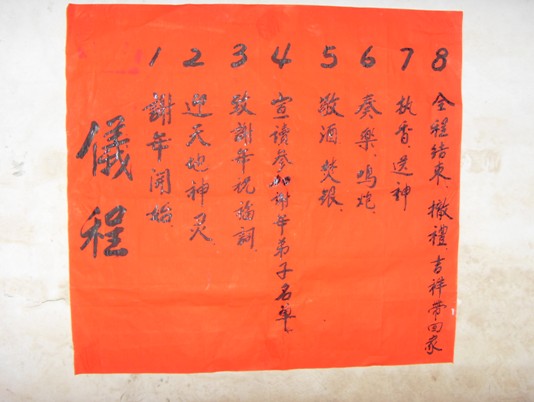 儀程
1 謝年開始
2 迎天地神灵
3 致謝年祝福詞
4 宣读参加谢年弟子名单
5 敬酒、焚银、
6 奏樂、鳴炮
7 执香、送神
8 全程结束 撤禮 吉祥带回家